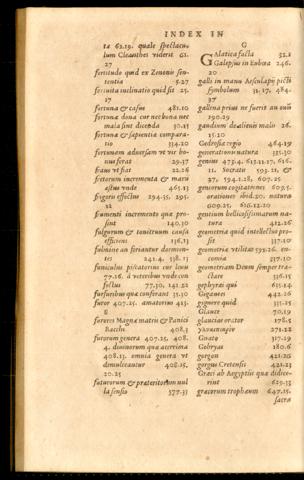 INDEX IN
ta 62.19. quale spectacu-
lum Cleanthes viderit 61.
27
fortitudo quid ex Zenonis sen-
tentia 5.27
fortuita inclinatio quid sit 25.
17
fortuna & casus 481.10
fortuna dona cur nec bona nec
mala sint dicenda 30.15
fortuna & sapientia compara-
tio 334.20
fortunam aduersam vt vir bo-
nus ferat 29.37
fraus vt fiat 22.26
fretorum incrementa & maris
æstus vnde 465.13
frigoris effectus 294.35. 295.
12
frumenti incrementis quæ pro-
sint 140.30
fulgurum & tonitruum causa
efficiens 136.13
fulmine an feriantur dormien-
tes 241.4. 538.13
funiculus piscatorius cur leuis
77.26. à veteribus vnde con-
fectus 77.30, 141.22
furfuribus quæ conferant 51.10
furor 407.25. amatorius 415.
8
furores Magnæ matris & Panici
Bacchi 408.3
furorum genera 407.25, 408.
4. diuinorum quæ acerrima
408.13. omnia genera vt
demulceantur 408.15.
20.25
futurorum & præteritorum nul-
la sensio 377.33
G
Galatica facta 32.2
Galepsus in Euboea 246.
20
galli in manu Aesculapij picti
symbolum 31.17, 484.
37
gallina prius ne fuerit an ouum
190.29
gaudium dealienis malis 26.
15.20
Gedrosia regio 464.19
generationis natura 335.30
genius 473.4, 615.11.17, 616.
11. Socratis 593.21, &
27, 594.1.28, 607.25
geniorum cogitationes 609.5.
orationes ibid.20. natura
609.25, 616.12.20
gentium bellicosissimarum na-
tura 412.26
geometria quid intellectus pro-
sit 337.10
geometriæ vtilitas 595.26. en-
comia 337.10
geometriam Deum semper tra-
ctare 336.15
gephyræi qui 635.14
Gigantes 442.26
gignere quid 335.25
Glauce 70.19
glauciæ orator 178.5
Gnatο 317.19
Gobryas 180.6
gorgon 421.20
gorgus Cretensis 421.23
Græci ab Aegyptijs quæ didice-
rint 629.33
græcorum trophæum 647.15.
sacra